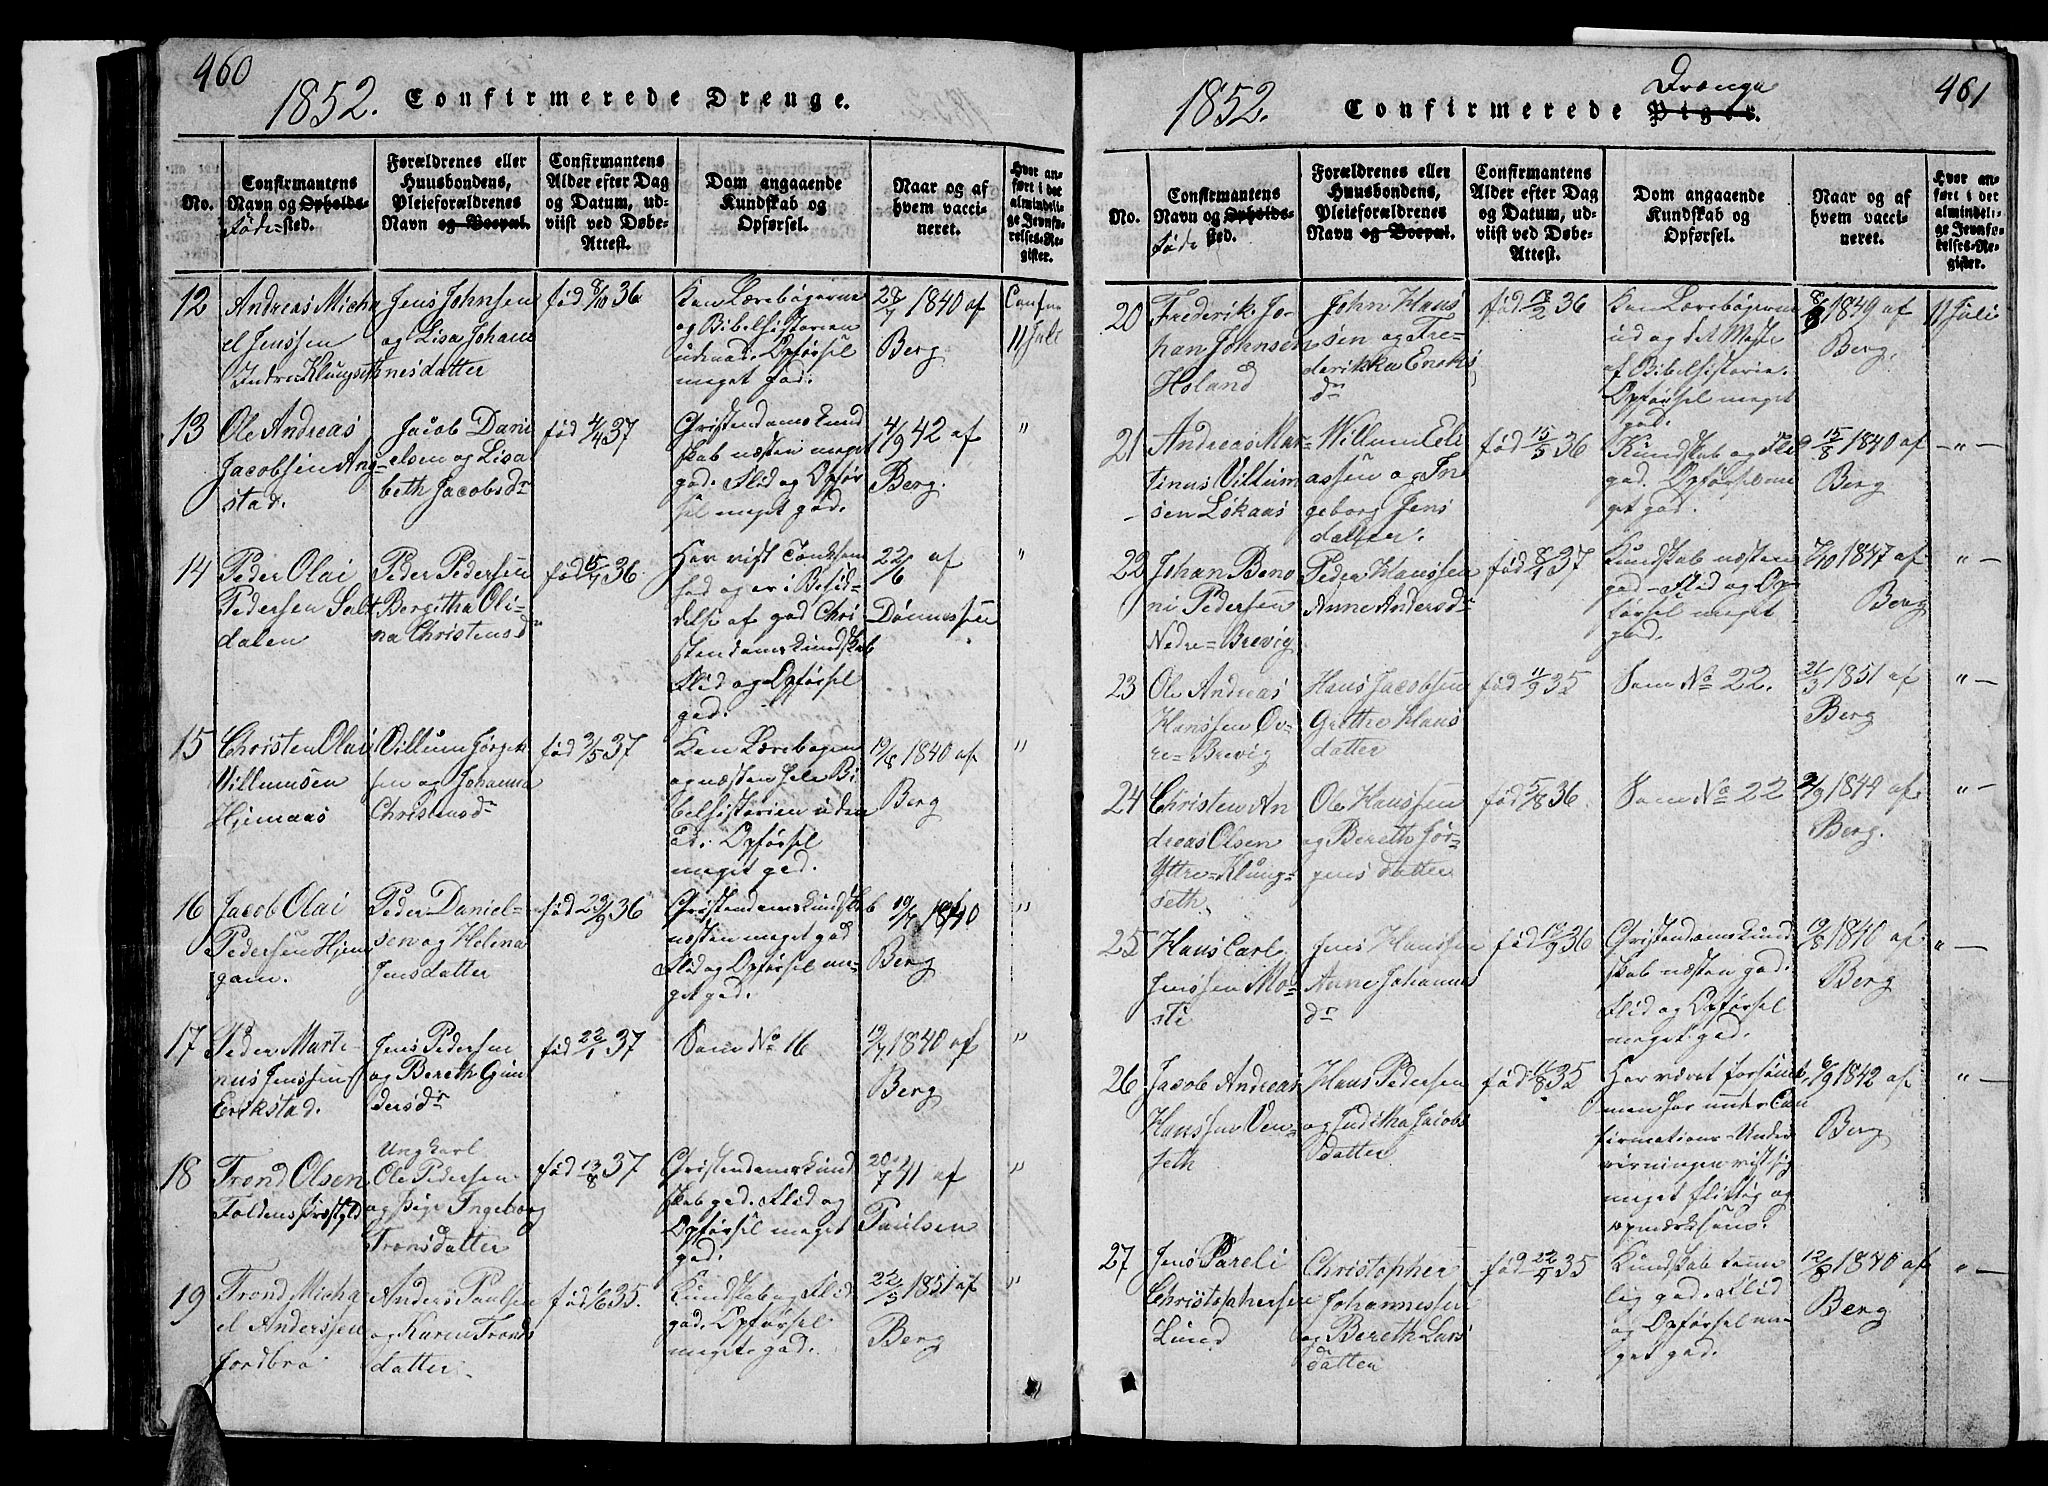 460
1852. Confirmerede Drenge.
No.
Confirmantens
Navn og Opholds-
Føde-sted.
Forældrenes eller
Huusbondens,
Pleieforældrenes
Navn og Boepæl.
Confirmantens
Alder efter Dag
og Datum, ud-
viist ved Døbe-
Attest.
Dom angaaende
Kundskab og
Opførsel.
Naar og af
hvem vacci-
neret.
Hvor an-
ført i det
almindeli-
ge Jevnfø-
relses-Re-
gister.
12
Andreas Micha
el Jenssen
Indre Klungset
Jens Johnsen
og Lisa Johan
nesdatter
fød 8/10 36
Kan Lærebøgerne
og Bibelhistorien
udenad. Opførsel
meget god.
28/7 1840 af
Berg
Confir
11 Juli
13
Ole Andreas
Jacobsen Ang-
stad.
Jacob Dani
elsen og Lisa
beth Jacobsdr
fød 4/4 37
Christendomskund
skab næsten meget
god. Flid og Opfør
sel meget god.
4/9 42 af
Berg.
"
14
Peder Olai
Pedersen Salt
dalen
Peder Pedersen
Bergitha Oli-
na Christensd
fød 15/7 36
Har vist Tænksom
hed og er i Besid-
delse af god Chri
stendomskundskab
Flid og Opførsel
god.
22/6 af
Dønnessen
"
15
Christen Olai
Villumsen
Hjemaas
Villum Jørgen
sen og Johanna
Christensdr
fød 3/5 37
Kan Lærebogen
og næsten hele Bi
belhistorien uden
ad. Opførsel
meget god.
19/8 1840 af
Berg
"
16
Jacob Olai
Pedersen Hjem
gam.
Peder Daniel-
sen og Helena
Jensdatter
fød 29/9 36
Christendomskundskab
næsten meget god
Flid og Opførsel me-
get god.
19/7 1840
Berg
"
17
Peder Marti
nus Jenssen
Erikstad.
Jens Pedersen
og Bereth Gun
dersdr
fød 22/1 37
Som No 16
12/7 1840 af
Berg
"
18
Trond Olsen
Foldens Præstgld
Ungkarl
Ole Pedersen
og Pige Ingeborg
Tronsdatter
fød 13/8 37
Christendomskund
skab god. Flid og
Opførsel meget
god.
20/7 41 af
Paulsen
"
19
Trond Micha
el Anderssen
Jordbro
Anders Paulsen
og Karen Tronds
datter
fød 1/6 35.
Kundskab og Flid
god. Opførsel
meget god.
22/5 1851 af
Berg
"
461
1852. Confirmerede Piger.
Drenge
No.
Confirmantens
Navn og Opholds-
Føde sted.
Forældrenes eller
Huusbondens,
Pleieforældrenes
Navn og Boepæl.
Confirmantens
Alder efter Dag
og Datum, ud-
viist ved Døbe-
Attest.
Dom angaaende
Kundskab og
Opførsel.
Naar og af
hvem vacci-
neret.
Hvor an-
ført i det
almindeli-
ge Jevnfø-
relses-Re-
gister.
20
Frederik Jo-
han Johnsen
Høland
John Hans
sen og Fre-
derikka Eriks
dr
fød 18/2 36
Kan Lærebøgerne
ud og det Meste
af Bibelhistorie.
Opførsel meget
god.
1849 af
Berg.
11 Juli
21
Andreas Mar-
tinus Villum
sen Løkaas
Willum Eli
assen og In
geborg Jens
datter.
fød 15/5 36
Kundskab og Flid
god. Opførsel me
get god.
15/8 1840 af
Berg
- " -
22
Johan Beno
ni Pedersen
Nedre=Brevig
Peder Hanssen
Anne Andersdr
fød 8/1 37
Kundskab næsten
god - Flid og Op
førsel meget
god.
7/10 1847 af
Berg
" -
23
Ole Andreas
Hanssen Øv-
re=Brevig
Hans Jacobsen
Grethe Hans
datter
fød 11/9 35
Som No 22.
21/3 1851 af
Berg
" -
24
Christen An
dreas Olsen
Yttre=Klung-
seth.
Ole Hanssen
og Bereth Jør-
gens datter
fød 5/8 36.
Som No 22
2/9 1844 af
Berg.
" -
25
Hans Carl
Jenssen Mo-
sti
Jens Hanssen
Anne Johannes
dr
fød 19/9 36
Christendomskund
skab næsten god.
Flid og Opførsel
meget god.
19/8 1840 af
Berg
" -
26
Jacob Andreas
Hanssen Ven-
seth
Hans Pedersen
og Juditha Jacobs
datter
fød 11/8 35
Har været forsømt,
men har under Con
firmations-Under
visningen vist sig
meget flittig og
opmærksom.
6/9 1842 af
Berg
" -
27
Jens Pareli
Christophersen
Lund
Christopher
Johannessen
og Bereth Lars
datter
fød 22/4 35
Kundskab temme
lig god. Flid
og Opførsel me-
get god.
12/8 1840 af
Berg
" -